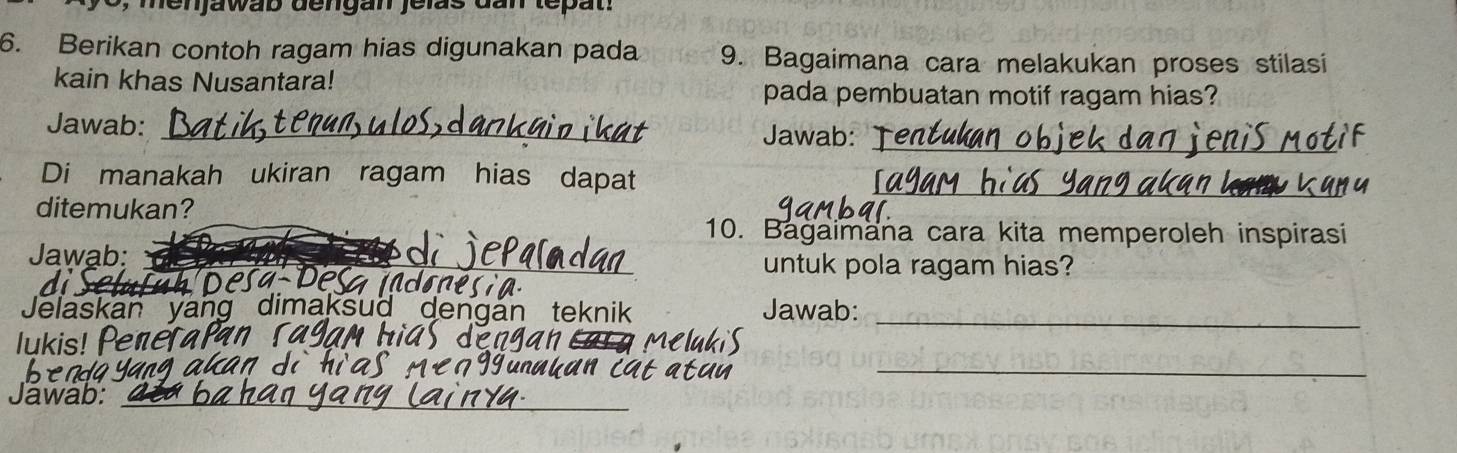 menjawab dengan jelas dan tepat!
6. Berikan contoh ragam hias digunakan pada
kain khas Nusantara!
Jawab: Batik, tenun, ulos, dankain ikat
Di manakah ukiran ragam hias dapat
ditemukan?
Jawab: di jeparadan
di Desa-Desa indonesia.
Jelaskan yang dimaksud dengan teknik
lukis! Penerapan ragam hias dengan melukis
benda yang akan di hias menggunakan cat atau
Jawab: bahan yang lainya.
9. Bagaimana cara melakukan proses stilasi
pada pembuatan motif ragam hias?
Jawab: Tentukan objek dan jenis Motif
ragam hias yang akan kamu
gambar.
10. Bagaimana cara kita memperoleh inspirasi
untuk pola ragam hias?
Jawab: